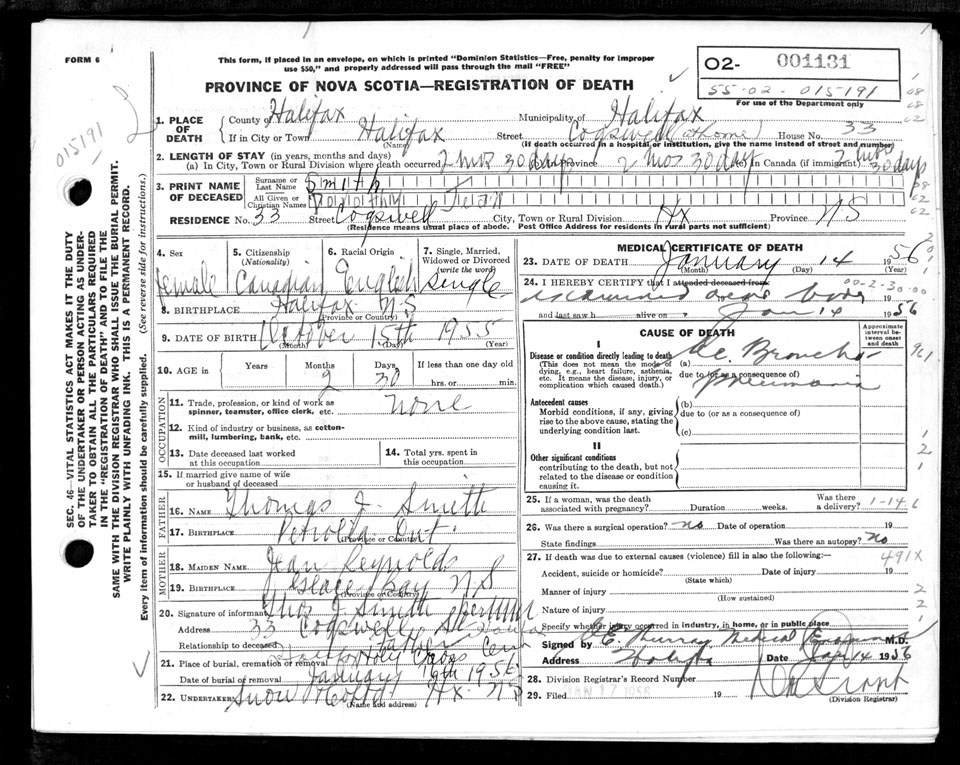 FORM 6
This form, if placed in an envelope, on which is printed "Dominion Statistics—Free, penalty for improper
use $50," and properly addressed will pass through the mail "FREE"
PROVINCE OF NOVA SCOTIA—REGISTRATION OF DEATH
O2- 001131
55-02-015191
For use of the Department only
015191
SEC. 46—VITAL STATISTICS ACT MAKES IT THE DUTY
OF THE UNDERTAKER OR PERSON ACTING AS UNDER-
TAKER TO OBTAIN ALL THE PARTICULARS REQUIRED
IN THE "REGISTRATION OF DEATH" AND TO FILE THE
SAME WITH THE DIVISION REGISTRAR WHO SHALL ISSUE THE BURIAL PERMIT.
WRITE PLAINLY WITH UNFADING INK. THIS IS A PERMANENT RECORD.
Every item of information should be carefully supplied. (See reverse side for instructions.)
1. PLACE OF DEATH
County of Halifax Municipality of Halifax
If in City or Town Halifax Street Cogswell (at home) House No. 33
(Name) (If death occurred in a hospital or institution, give the name instead of street and number)
2. LENGTH OF STAY (in years, months and days)
(a) In City, Town or Rural Division where death occurred 2 mos 30 days Province 2 mos 30 days in Canada (if immigrant) 2 mos 30 days
3. PRINT NAME OF DECEASED
Surname or Last Name Smith
All Given or Christian Names Dorothy Jean
RESIDENCE No. 33 Street Cogswell City, Town or Rural Division Hx Province NS
(Residence means usual place of abode. Post Office Address for residents in rural parts not sufficient)
4. Sex Female
5. Citizenship (Nationality) Canadian
6. Racial Origin English
7. Single, Married, Widowed or Divorced (write the word) Single
8. BIRTHPLACE Halifax N S
(Province or Country)
9. DATE OF BIRTH October 15th 1955
(Month) (Day) (Year)
10. AGE in Years Months 2 Days 30 If less than one day old hrs. or min.
OCCUPATION
11. Trade, profession, or kind of work as spinner, teamster, office clerk, etc. none
12. Kind of industry or business, as cotton-mill, lumbering, bank, etc.
13. Date deceased last worked at this occupation
14. Total yrs. spent in this occupation
15. If married give name of wife or husband of deceased
FATHER
16. NAME Thomas J. Smith
17. BIRTHPLACE Petrolia Ont.
(Province or Country)
MOTHER
18. MAIDEN NAME Jean Reynolds
19. BIRTHPLACE Glace Bay N S
(Province or Country)
20. Signature of informant Thos J Smith
Address 33 Cogswell St
Relationship to deceased father
21. Place of burial, cremation or removal Holy Cross Cem
Date of burial or removal January 1956
22. UNDERTAKER Snow & Co Ltd Hx NS
(Name and address)
MEDICAL CERTIFICATE OF DEATH
23. DATE OF DEATH January 14 1956
(Month) (Day) (Year)
24. I HEREBY CERTIFY that I attended deceased from 00-2-30-00
examined dead body 19
and last saw h alive on Jan 14 1956
CAUSE OF DEATH
Approximate interval between onset and death
I
Disease or condition directly leading to death
(This does not mean the mode of dying, e.g., heart failure, asthenia, etc. It means the disease, injury, or complication which caused death.)
(a) Ac. Broncho
due to (or as a consequence of) pneumonia
Antecedent causes
Morbid conditions, if any, giving rise to the above cause, stating the underlying condition last.
(b)
due to (or as a consequence of)
(c)
II
Other significant conditions contributing to the death, but not related to the disease or condition causing it.
25. If a woman, was the death associated with pregnancy? Duration weeks. Was there a delivery? 1-146
26. Was there a surgical operation? no Date of operation 19
State findings Was there an autopsy? no
27. If death was due to external causes (violence) fill in also the following:— 491X
Accident, suicide or homicide? Date of injury 19
(State which)
Manner of injury
(How sustained)
Nature of injury
Specify whether injury occurred in industry, in home, or in public place
Signed by E. Murray Medical Examiner M.D.
Address Halifax Date Jan 14 1956
28. Division Registrar's Record Number
29. Filed JAN 17 1956 19
(Division Registrar)